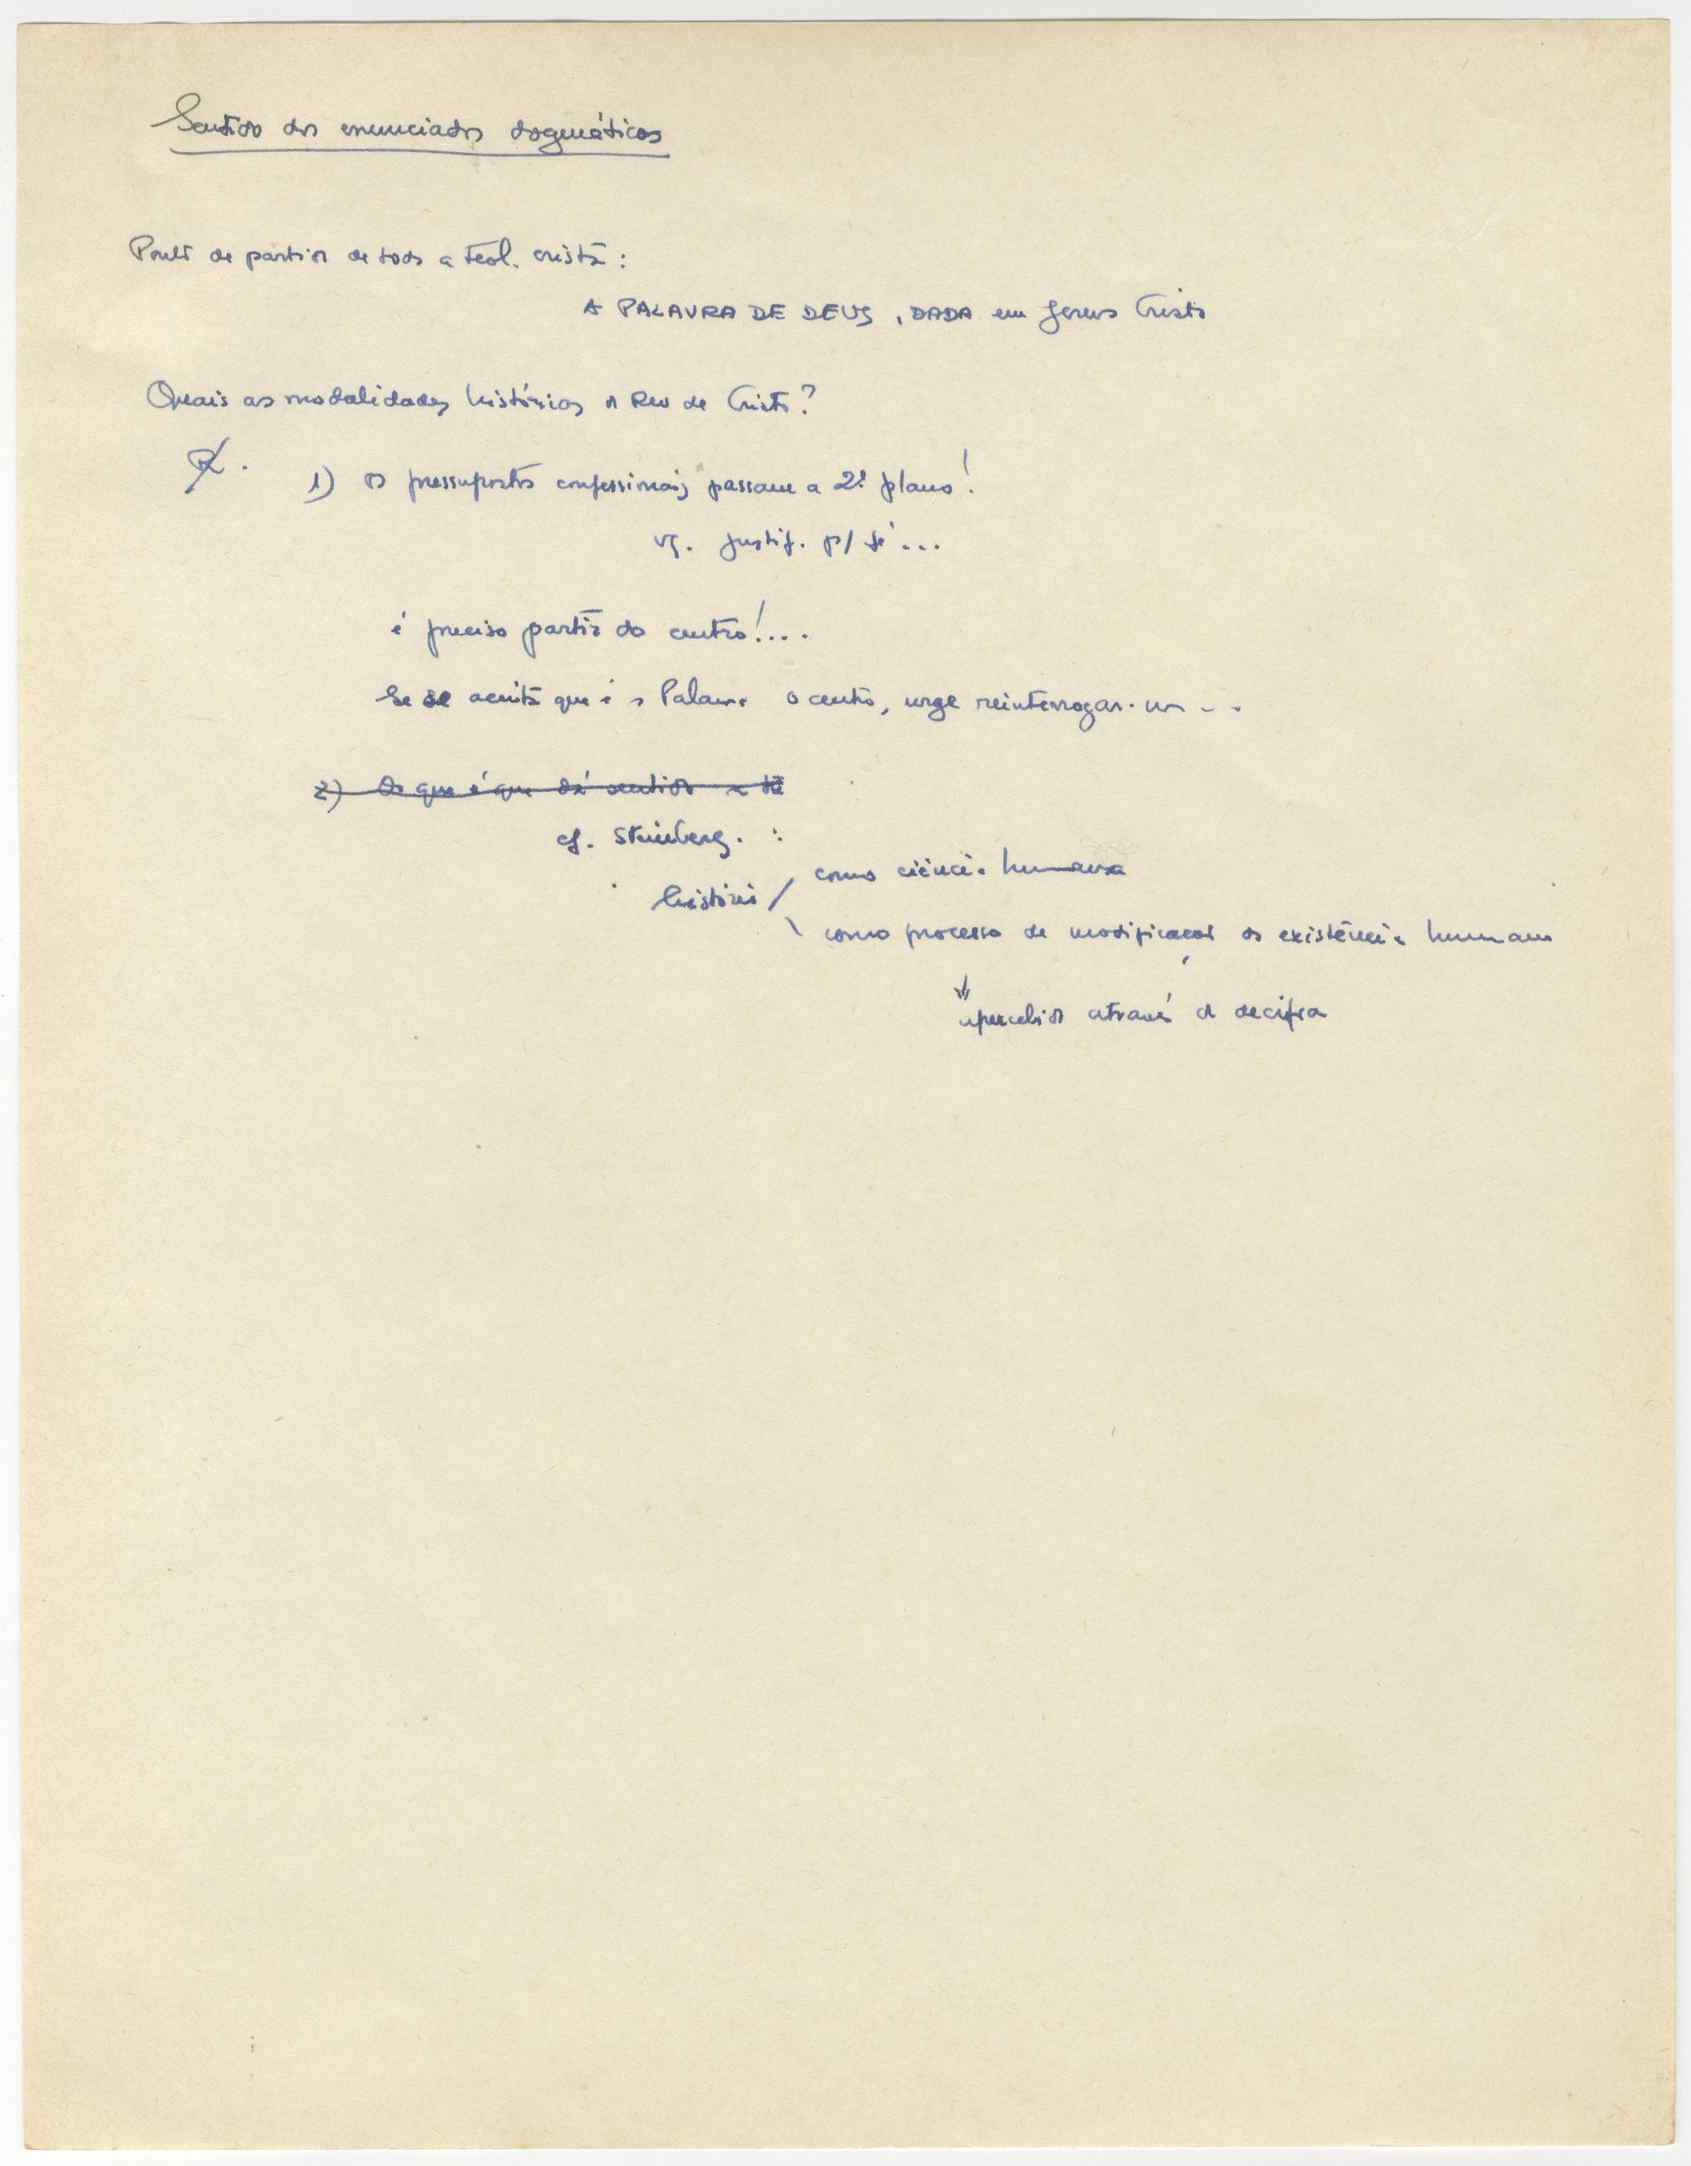 Sentido dos enunciados dogmáticos
Ponto de partida de toda a teol. cristã:
A PALAVRA DE DEUS, DADA em Jesus Cristo
Quais as modalidades históricas da Rev de Cristo?
R.
1) os pressupostos confessionais passam a 2º plano!
vg. justif. p/ fé...
é preciso partir do centro!...
Se se aceita que é a Palavra o centro, urge reinterrogar-nos...
2) O que é que dá sentido a
cf. Steinberg. :
história
como ciência humana
como processo de modificação da existência humana
apercebido através da decifra